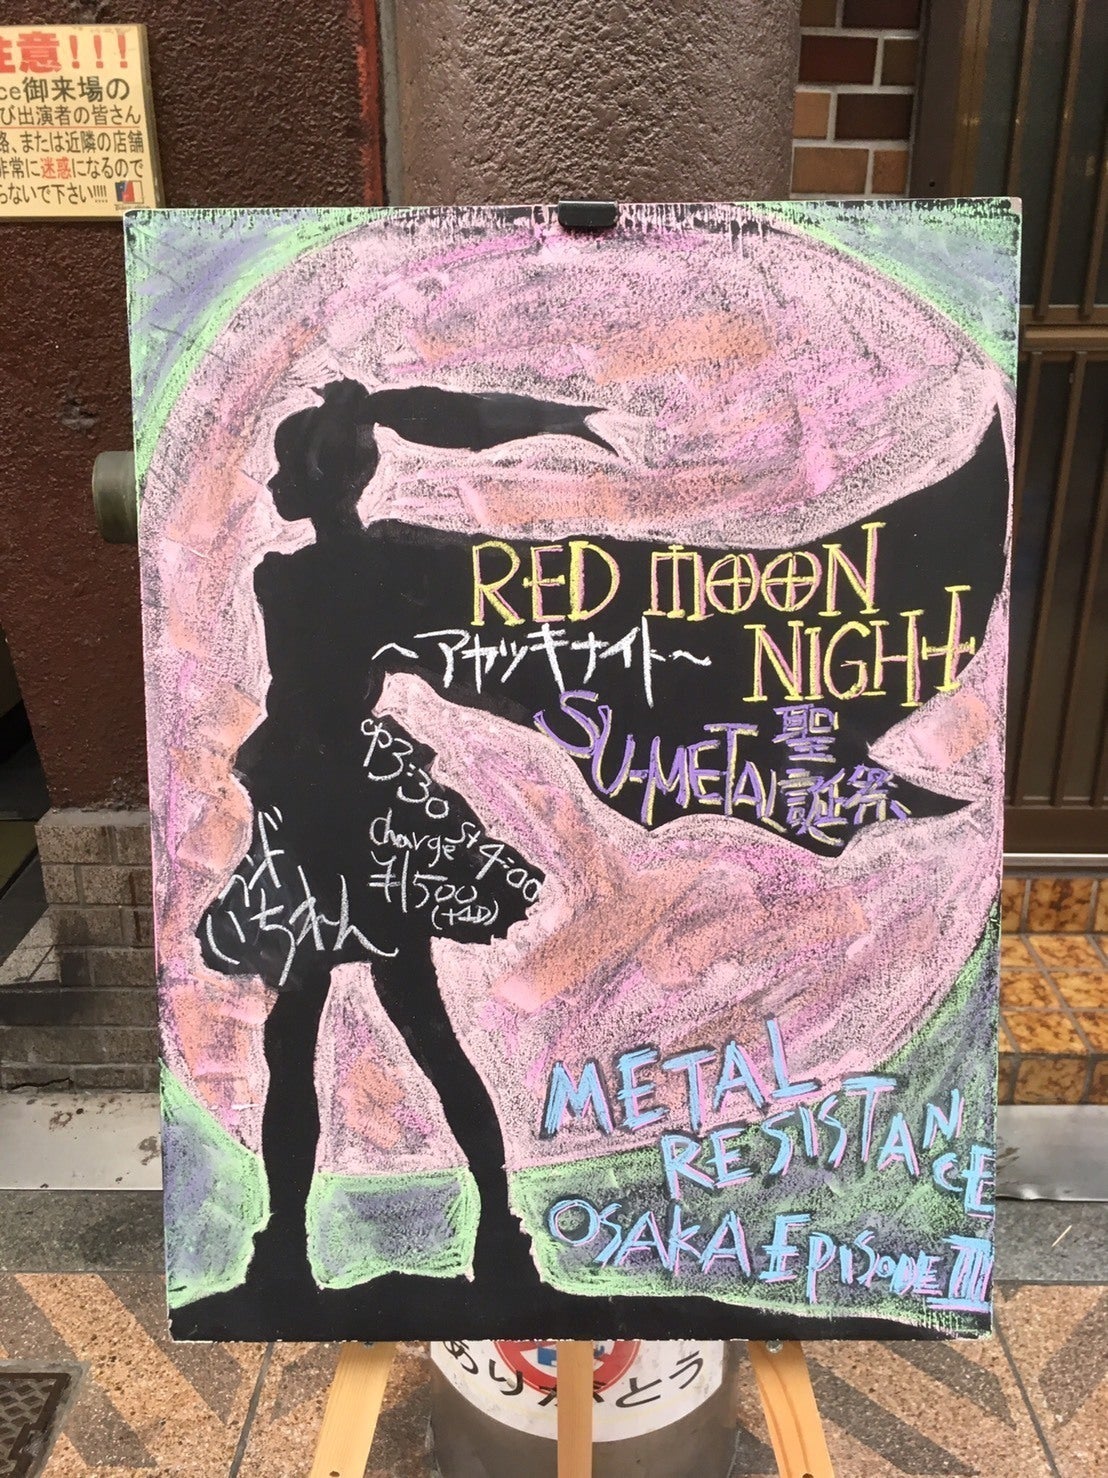 注意!!!
ce御来場の
び出演者の皆さん
路、または近隣の店舗
非常に迷惑になるので
らないで下さい!!!!
RED MOON
NIGHT
〜アカツキナイト〜
SU-METAL聖誕祭
op3:30
st4:00
charge
¥1500
(+1D)
METAL
RESISTANCE
OSAKA EPISODE III
ありがとう